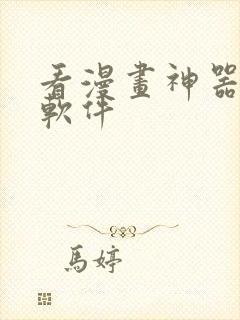 看漫畫神器
軟件
馬婷